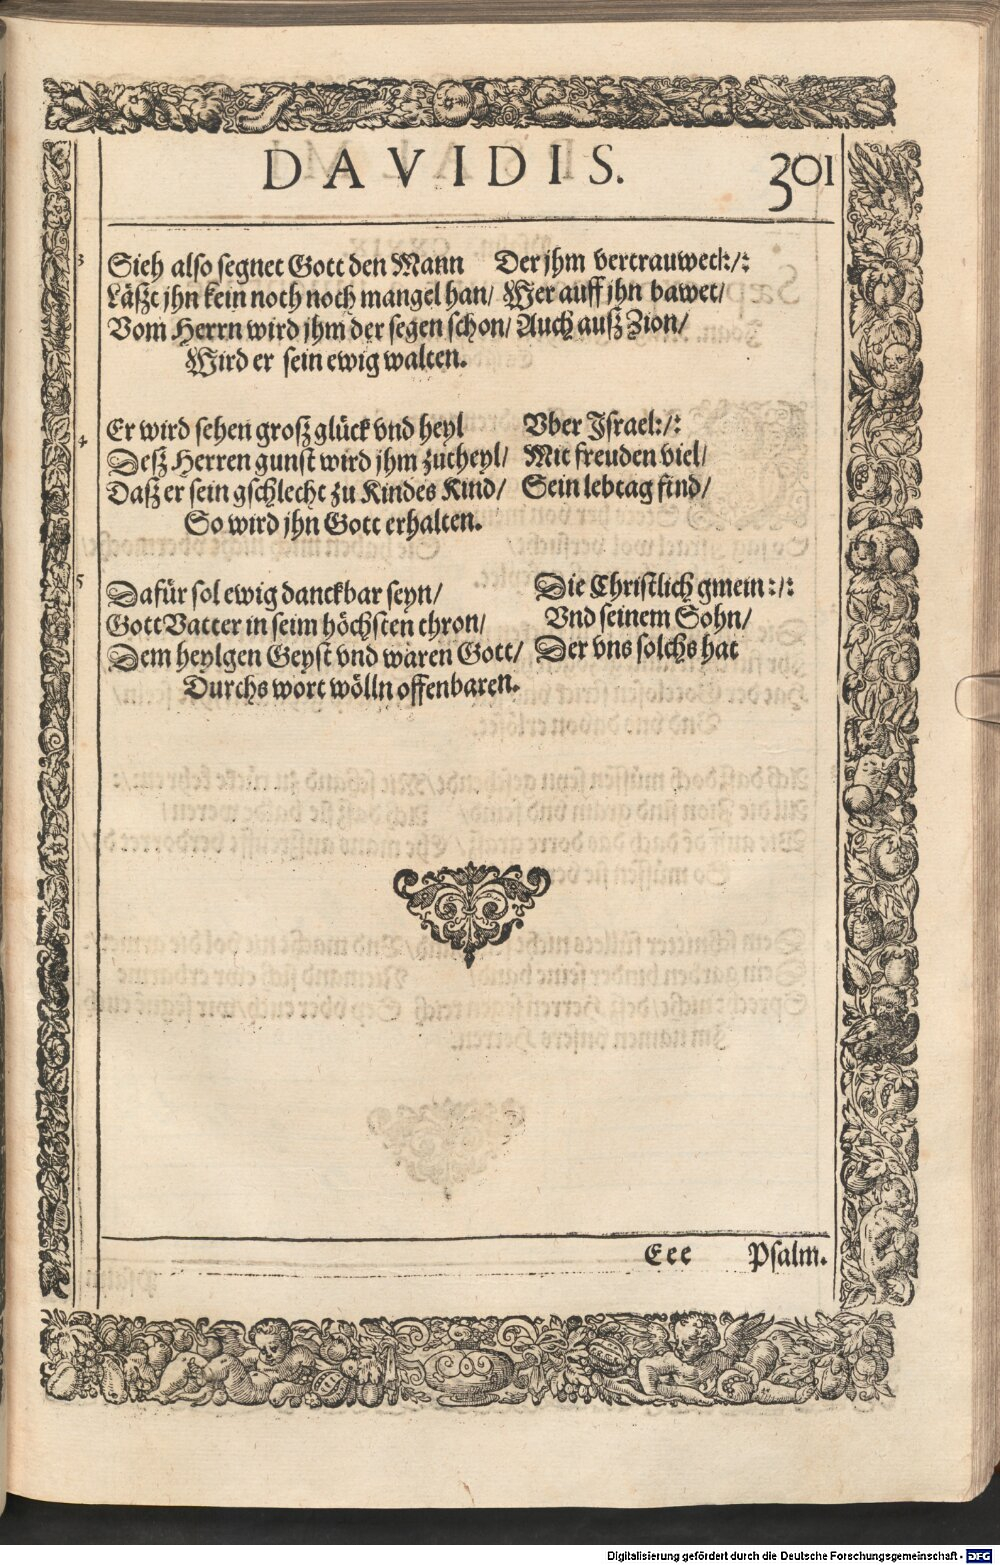 DAVIDIS. 301
3 Sieh also segnet Gott den Mann Der jhm vertrauwet:/:
Läßt jhn kein noth noch mangel han/ Wer auff jhn bawet/
Vom Herrn wird jhm der segen schon/ Auch auß Zion/
Wird er sein ewig walten.
4 Er wird sehen groß glück vnd heyl Vber Israel:/:
Deß Herren gunst wird jhm zutheyl/ Mit freuden viel/
Daß er sein gschlecht zu Kindes Kind/ Sein lebtag find/
So wird jhn Gott erhalten.
5 Dafür sol ewig danckbar seyn/ Die Christlich gmein:/:
Gott Vatter in seim höchsten thron/ Vnd seinem Sohn/
Dem heylgen Geyst vnd waren Gott/ Der vns solchs hat
Durchs wort wölln offenbaren.
Eee Psalm.
Digitalisierung gefördert durch die Deutsche Forschungsgemeinschaft - DFG